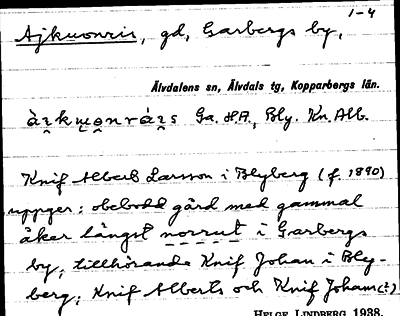 1-4
Ajkwonris, gd, Garbergs by,
Älvdalens sn, Älvdals tg, Kopparbergs län.
Ga. HA., Bly. Kn. Alb.
Knif Albert Larsson i Blyberg (f. 1890)
uppger: obebodd gård med gammal
åker längst norrut i Garbergs
by, tillhörande Knif Johan i Bly-
berg, Knif Alberts och Knif Johans (?)
HELGE LINDBERG 1938.